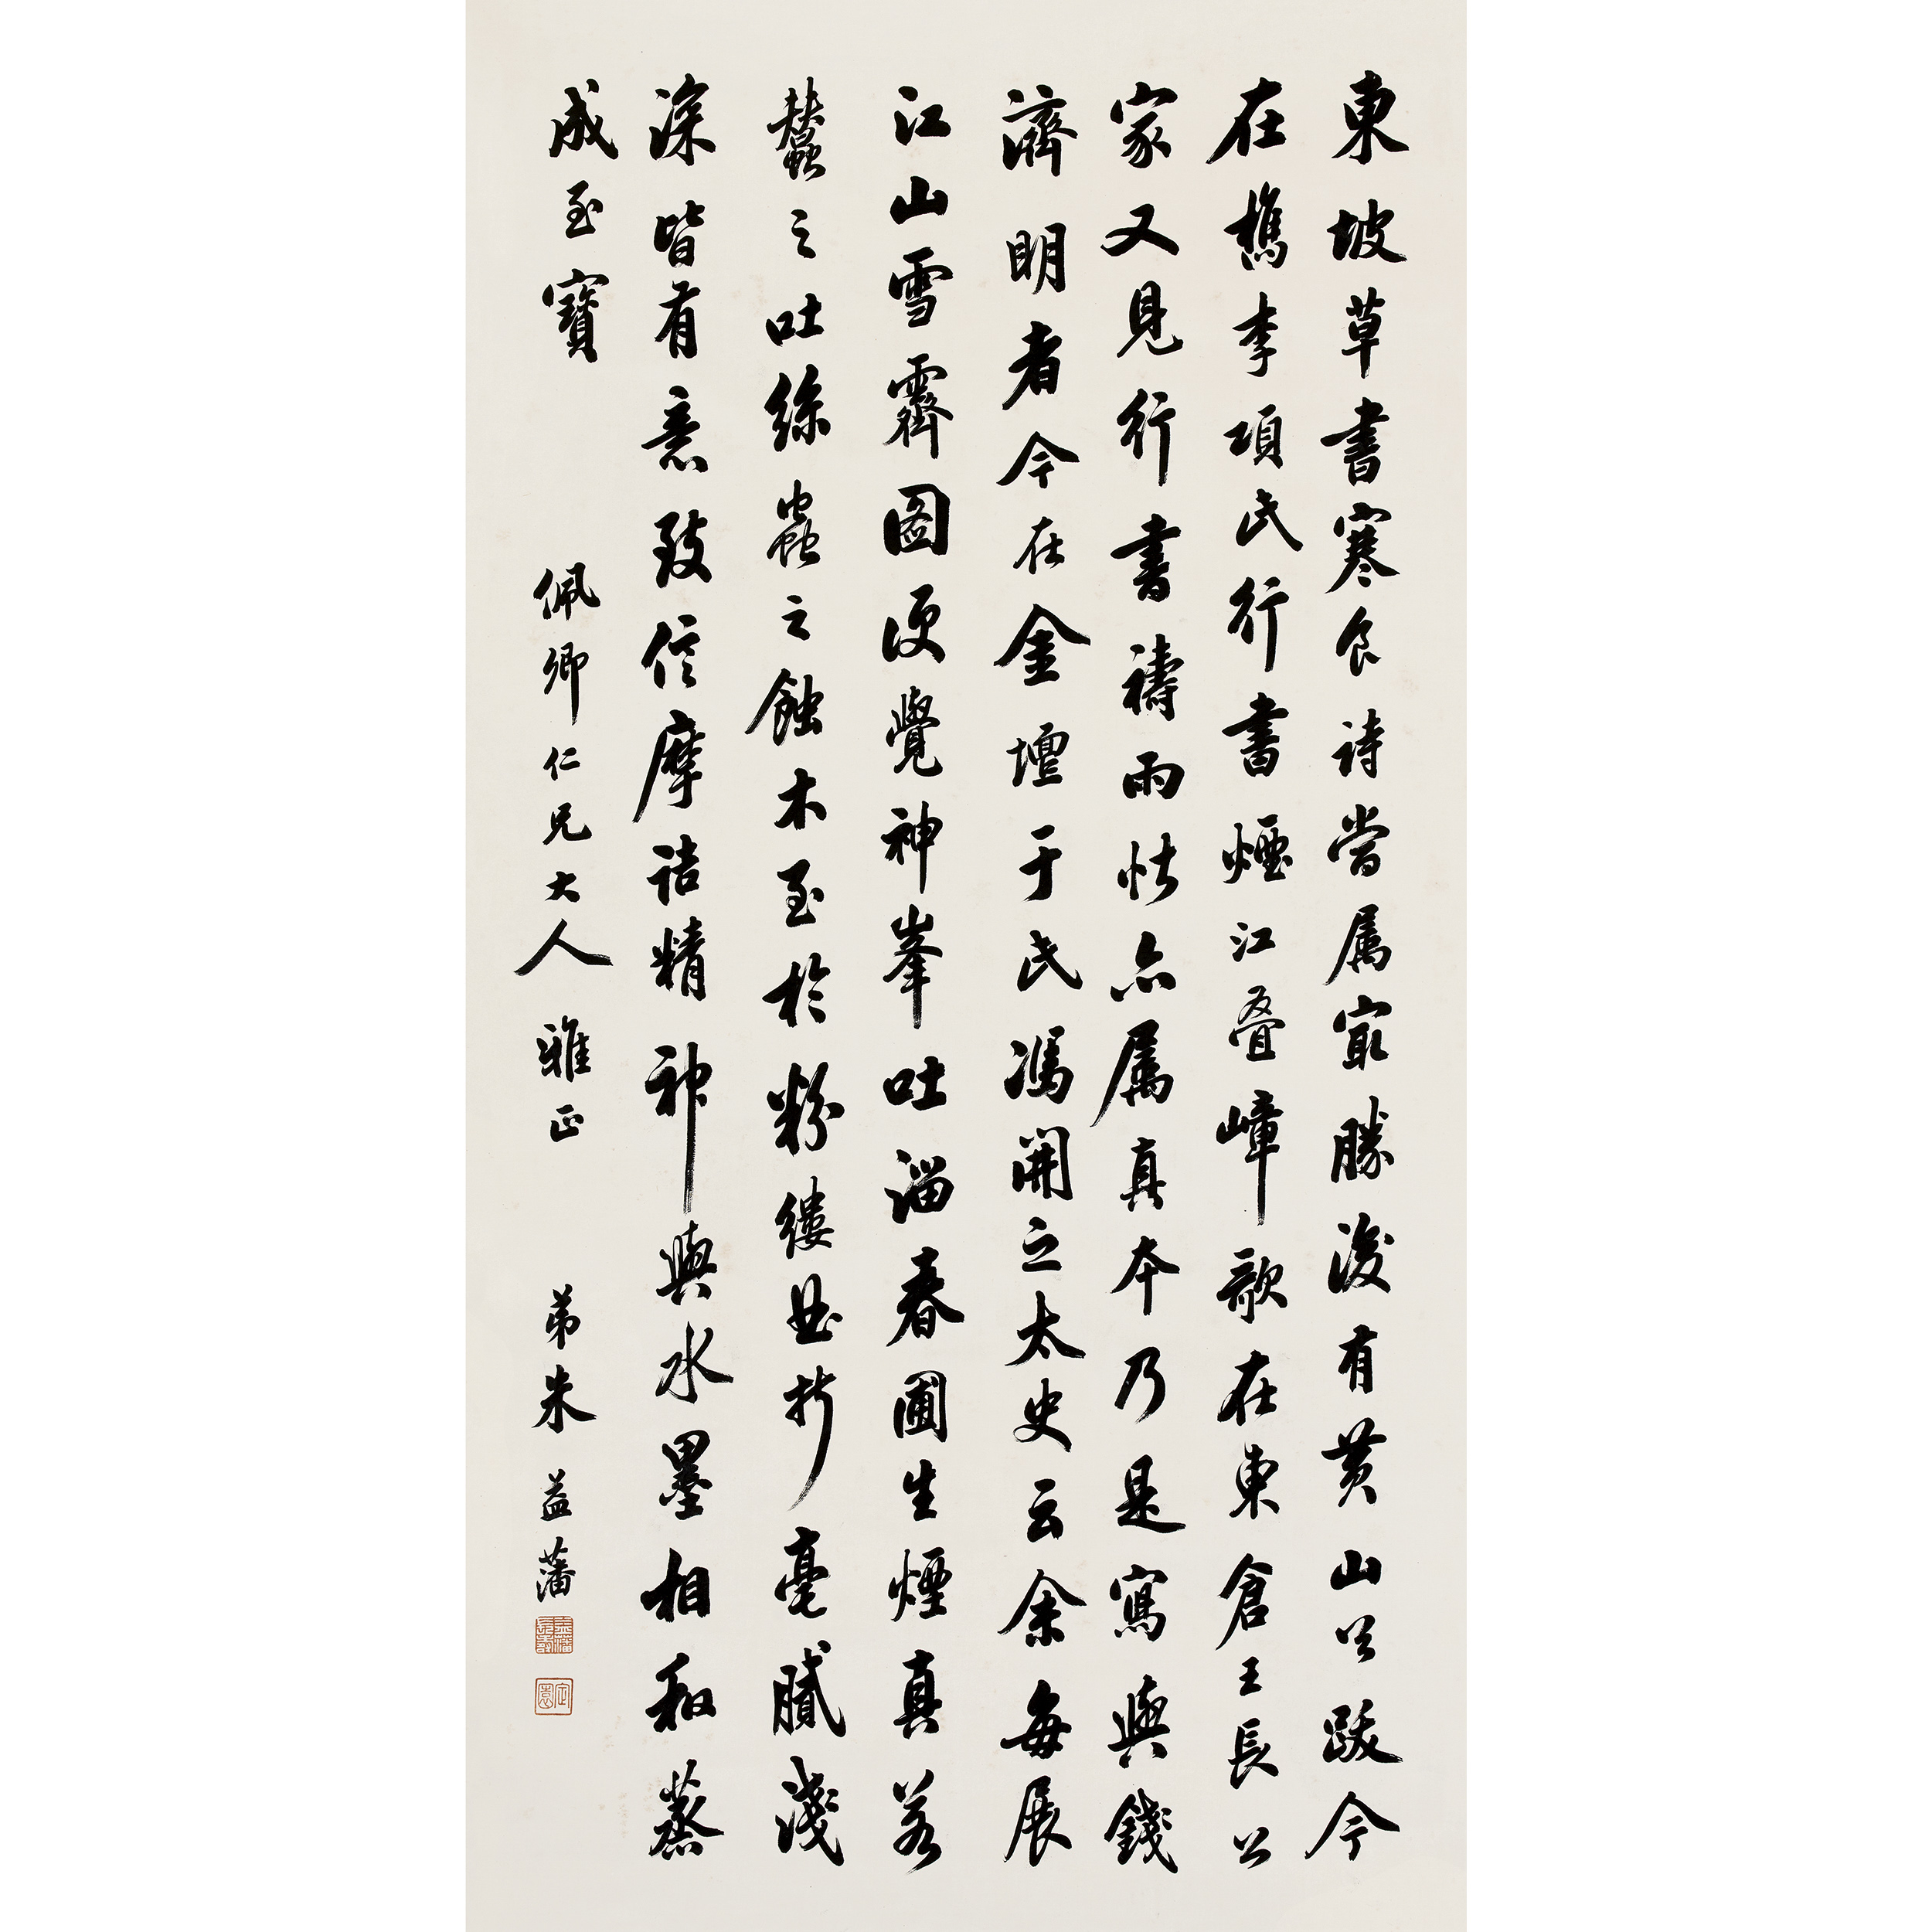 東坡草書寒食詩當屬最勝後有黄山谷跋今
在檇李項氏行書煙江疊嶂歌在東倉王長公
家又見行書禱雨帖亦屬真本乃是寫與錢
濟明者今在金壇于氏馮開之太史云余每展
江山雪霽圖便覺神峯吐溜春圃生煙真若
蠶之吐絲蟲之蝕木至於粉縷曲折毫膩淺
深皆有意致信摩詰精神與水墨相和蒸
成至寶
佩卿仁兄大人雅正
弟朱益藩